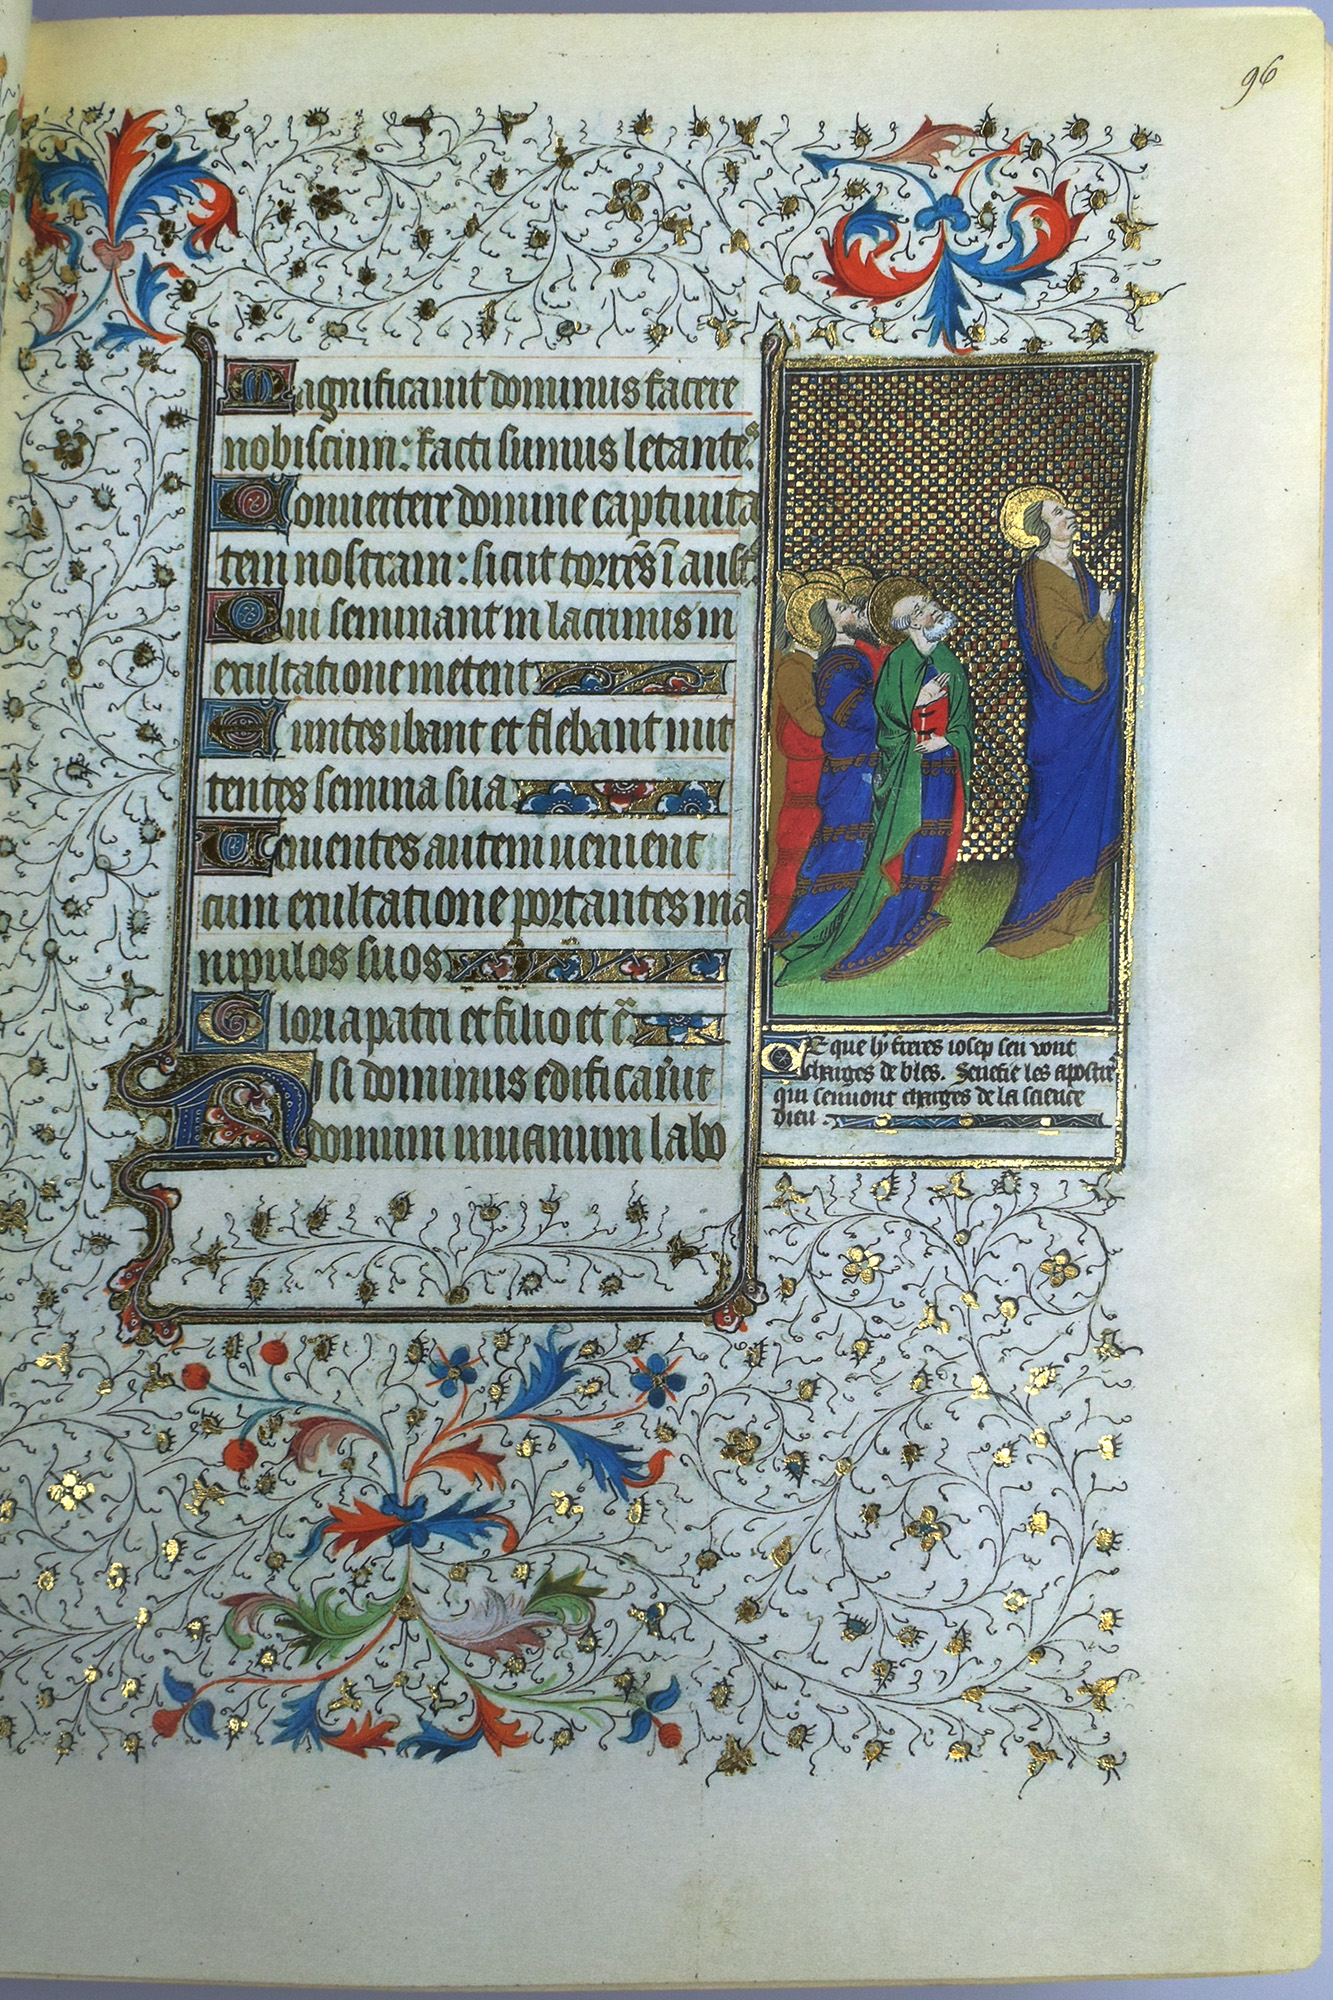 96
Magnificauit dominus facere
nobiscum: facti sumus letantes.
Conuertere domine captiuita
tem nostram: sicut torrēs ī aust
Qui seminant in lacrimis in
exultatione metent
Euntes ibant et flebant mit
tentes semina sua
Uenientes autem uenient
cum exultatione portantes ma
nipulos suos
Gloria patri et filio et c̄
Nisi dominus edificauit
domum in uanum labo
Ce que ly freres iosep sen vont
charges de bles. Senefie les apostr
qui senuont charges de la science
dieu.